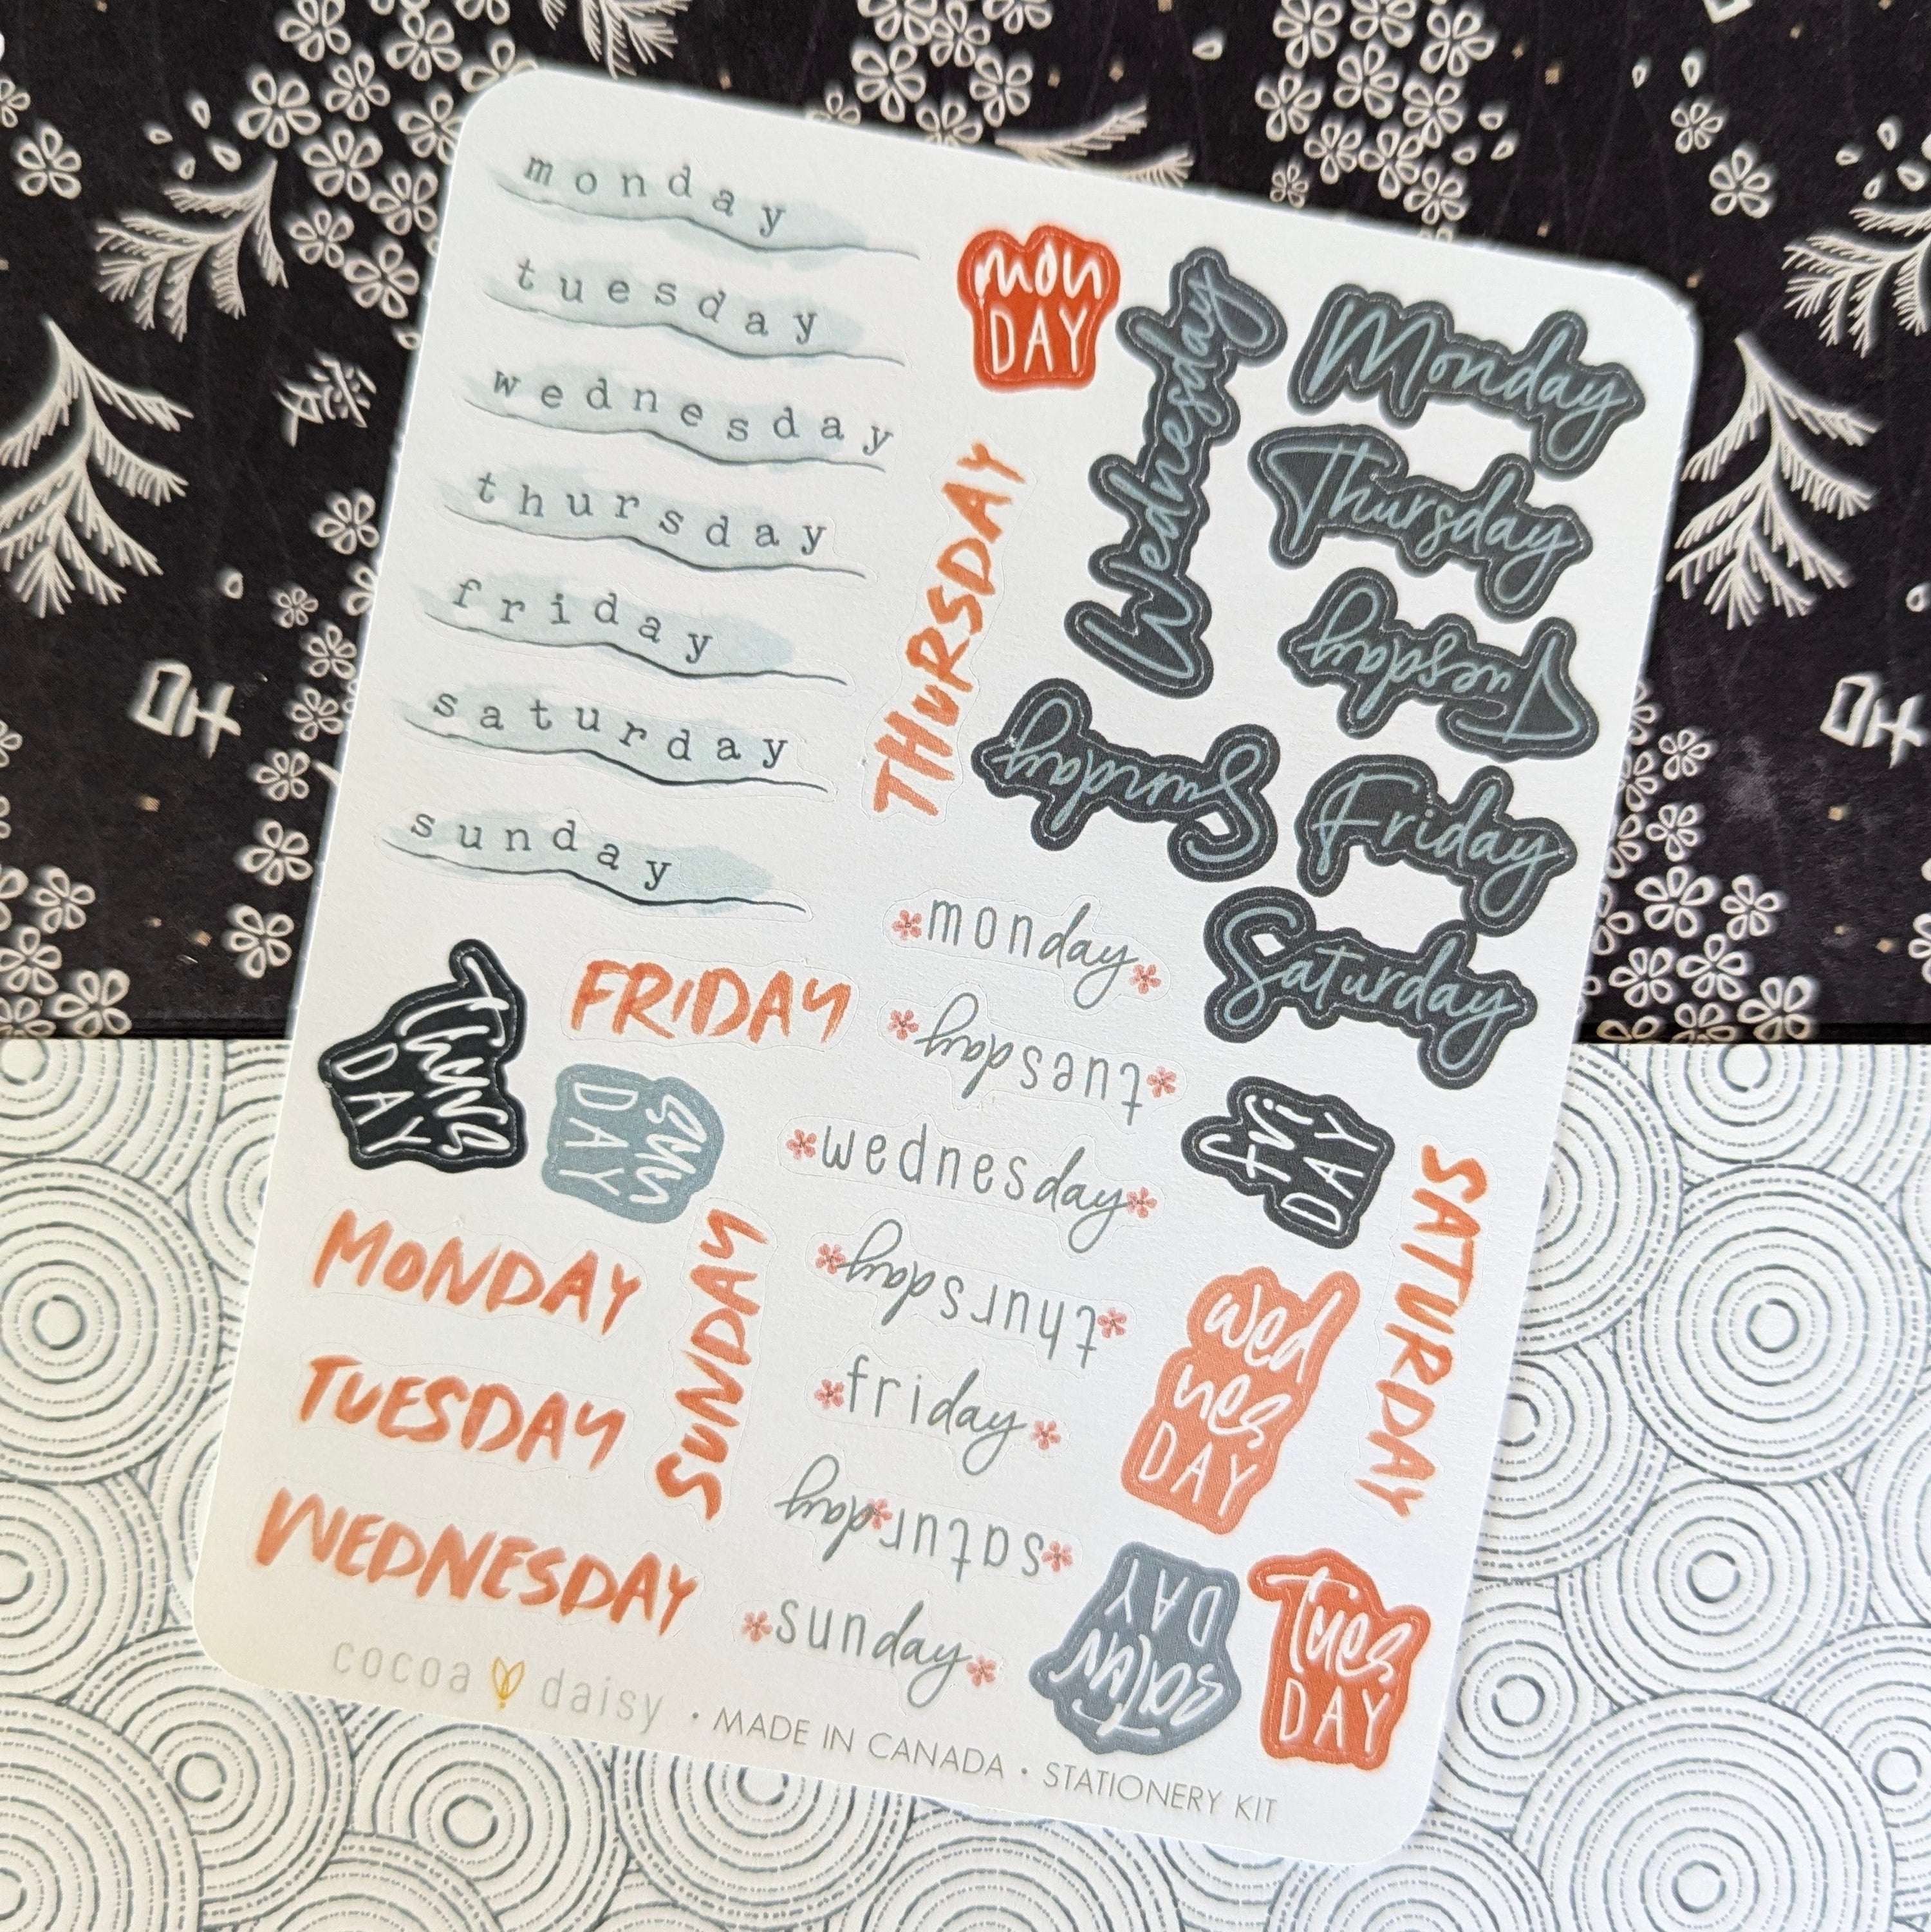 monday
tuesday
wednesday
thursday
friday
saturday
sunday
mon
DAY
Wednesday
Monday
Thursday
Tuesday
Friday
Saturday
Sunday
THURSDAY
monday
tuesday
wednesday
thursday
friday
saturday
sunday
FRIDAY
thurs
DAY
sun
DAY
fri
DAY
MONDAY
TUESDAY
WEDNESDAY
SUNDAY
SATURDAY
wed
nes
DAY
satur
DAY
Tues
DAY
cocoa daisy • MADE IN CANADA • STATIONERY KIT